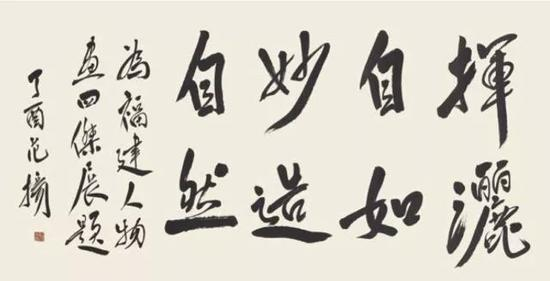 揮灑
自如
妙造
自然
為福建人物
畫四傑展題
丁酉范揚